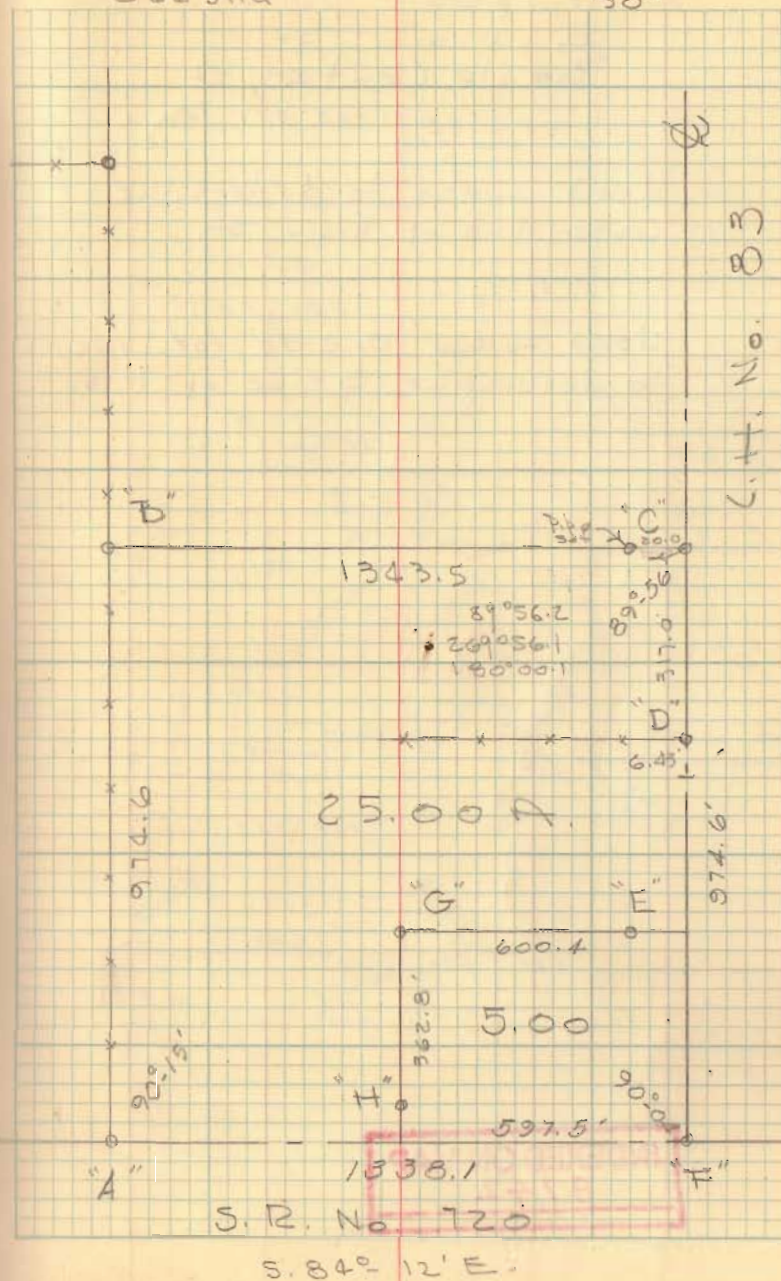 30
℄
C.H. No. 83
"B"
"C"
20.0
1343.5
89°-56'
89°56.2
269°56.1
180°00.1
317.0
"D"
6.45
25.00 A.
974.6
974.6'
"G"
"E"
600.4
362.8'
5.00
90°-15'
"H"
90°-04'
597.5'
"A"
1338.1
"F"
S.R. No 720
S. 84° 12' E.